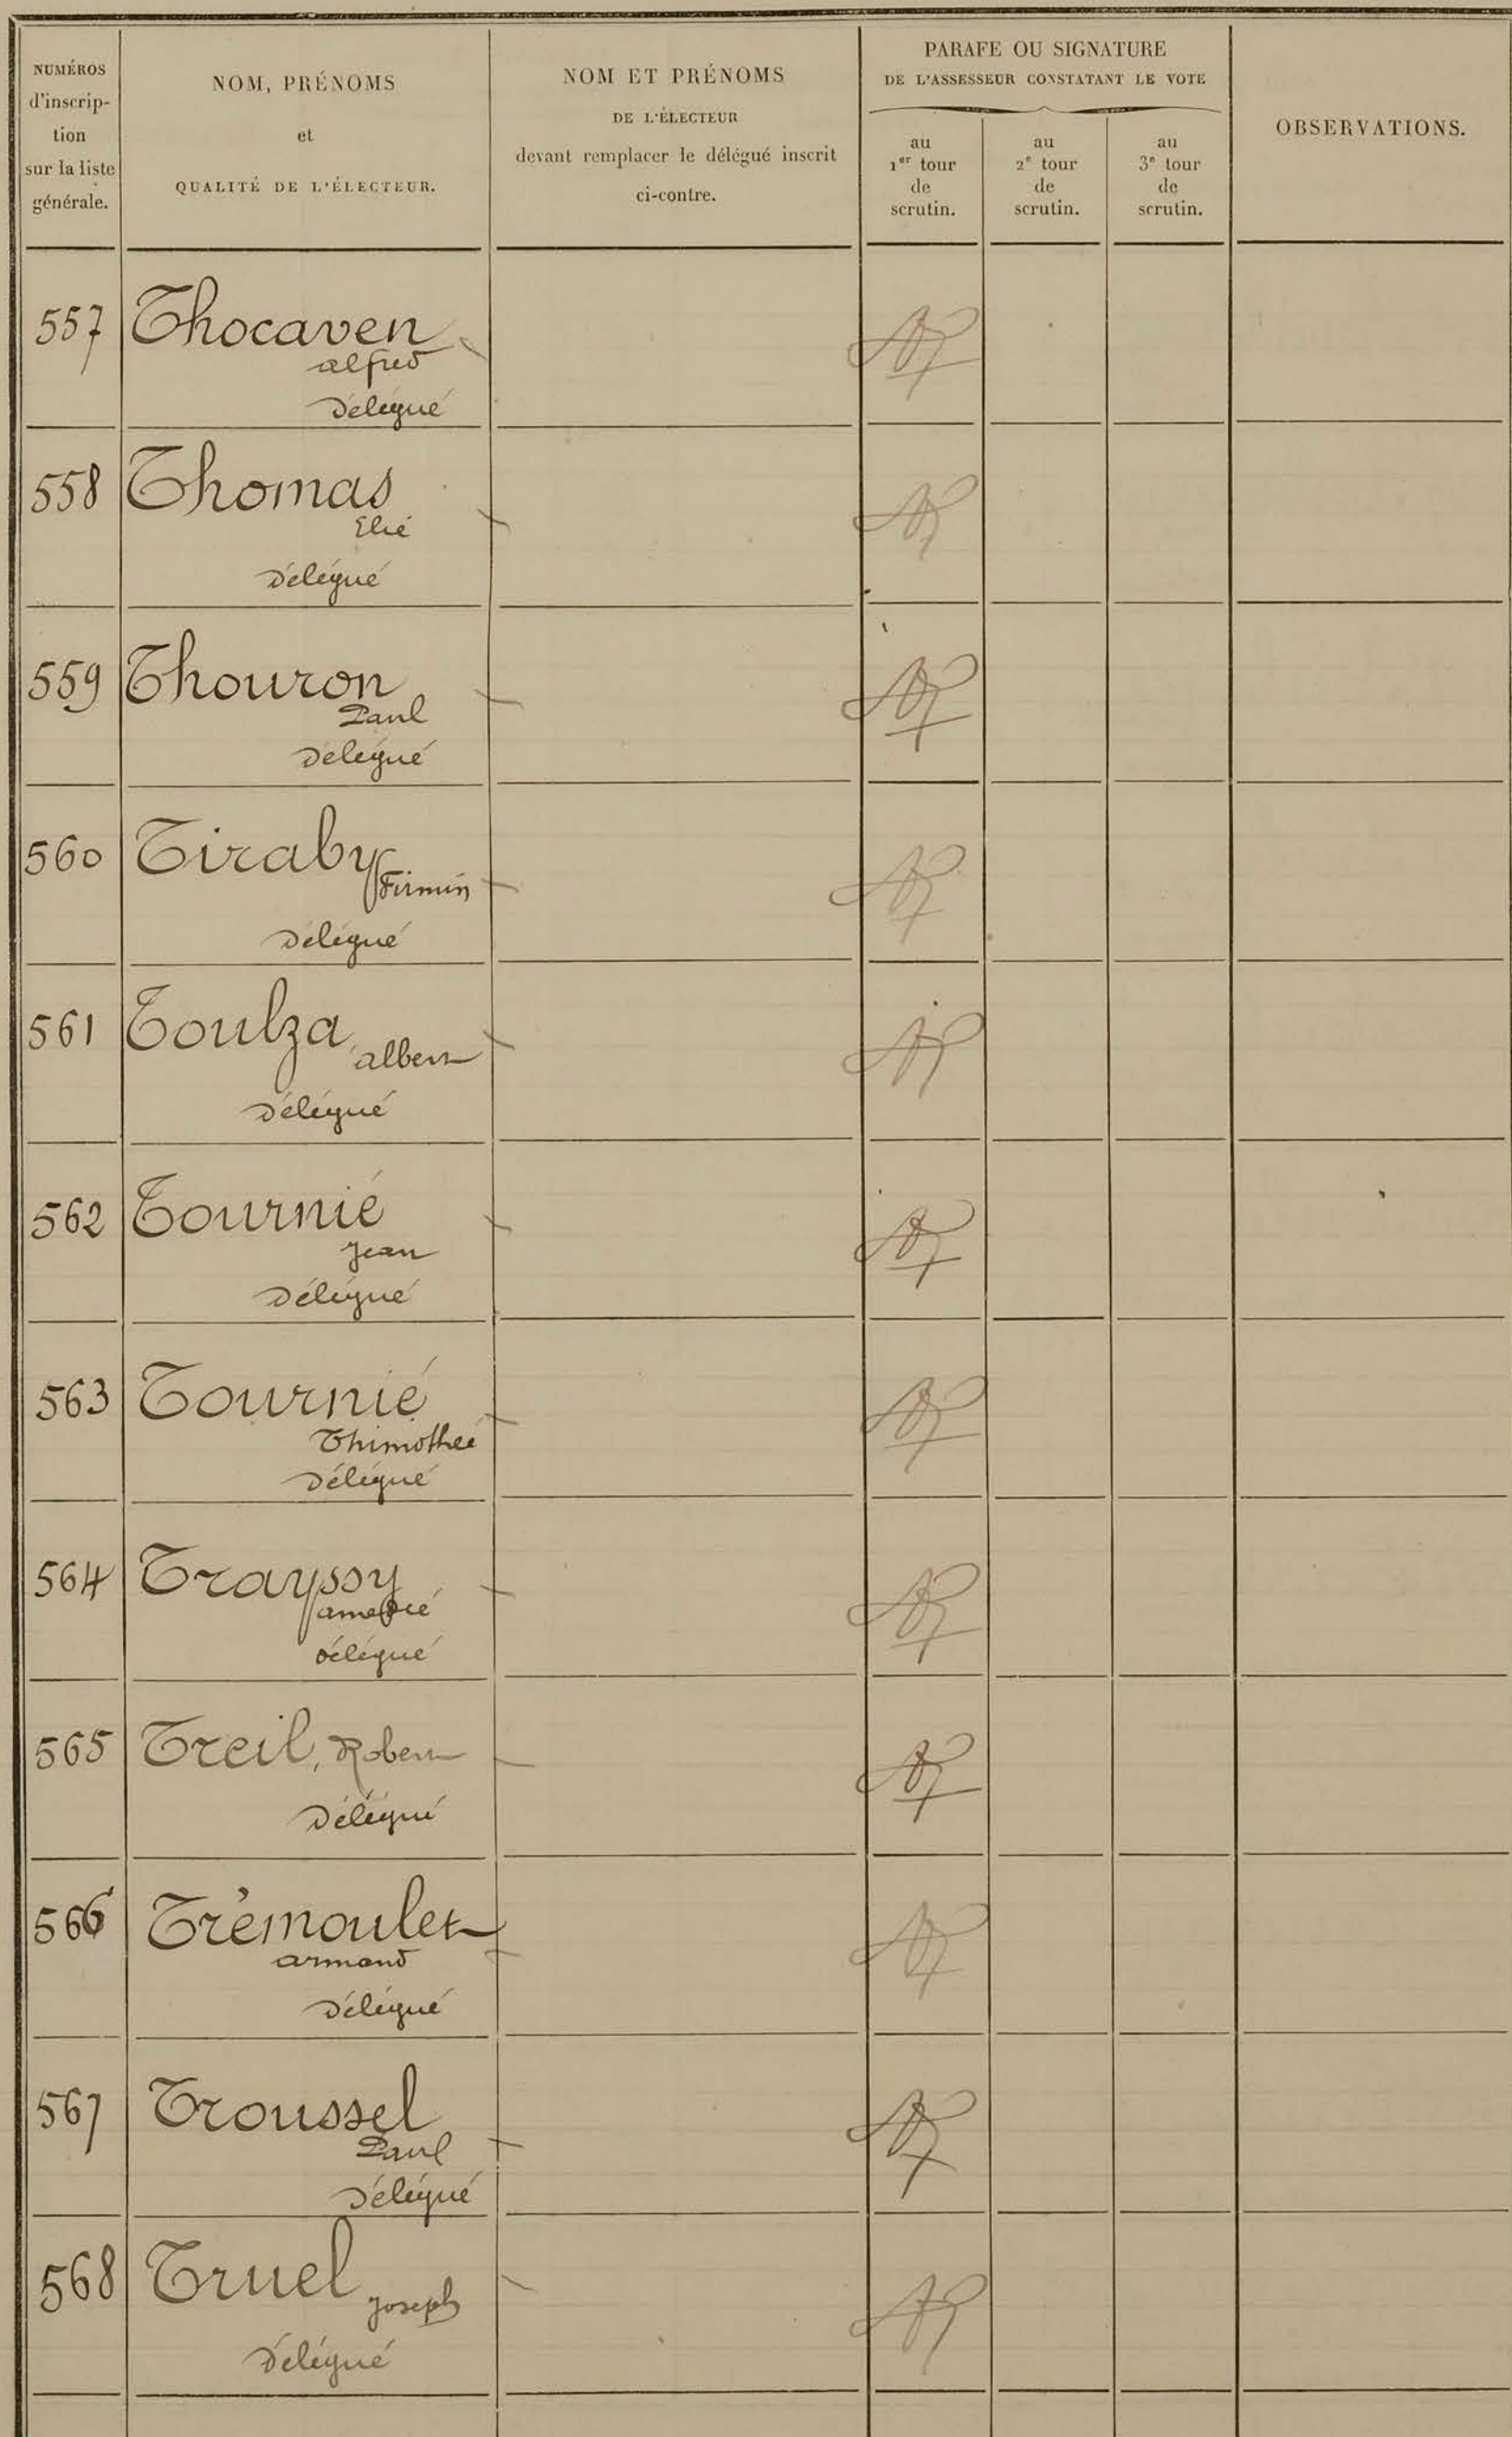 NUMÉROS
d'inscrip-
tion
sur la liste
générale.
NOM, PRÉNOMS
et
QUALITÉ DE L'ÉLECTEUR.
NOM ET PRÉNOMS
DE L'ÉLECTEUR
devant remplacer le délégué inscrit
ci-contre.
PARAFE OU SIGNATURE
DE L'ASSESSEUR CONSTATANT LE VOTE
au
1er tour
de
scrutin.
au
2e tour
de
scrutin.
au
3e tour
de
scrutin.
OBSERVATIONS.
557 Thocaven
alfred
Délégué
558 Thomas
Elie
Délégué
559 Thouron
Paul
Délégué
560 Tiraby Firmin
Délégué
561 Toulza albert
Délégué
562 Tournié
Jean
Délégué
563 Tournié
Thimothée
Délégué
564 Trayssy
amedée
délégué
565 Treil, Robert
Délégué
566 Trémoulet
armand
Délégué
567 Troussel
Paul
Délégué
568 Truel Joseph
Délégué